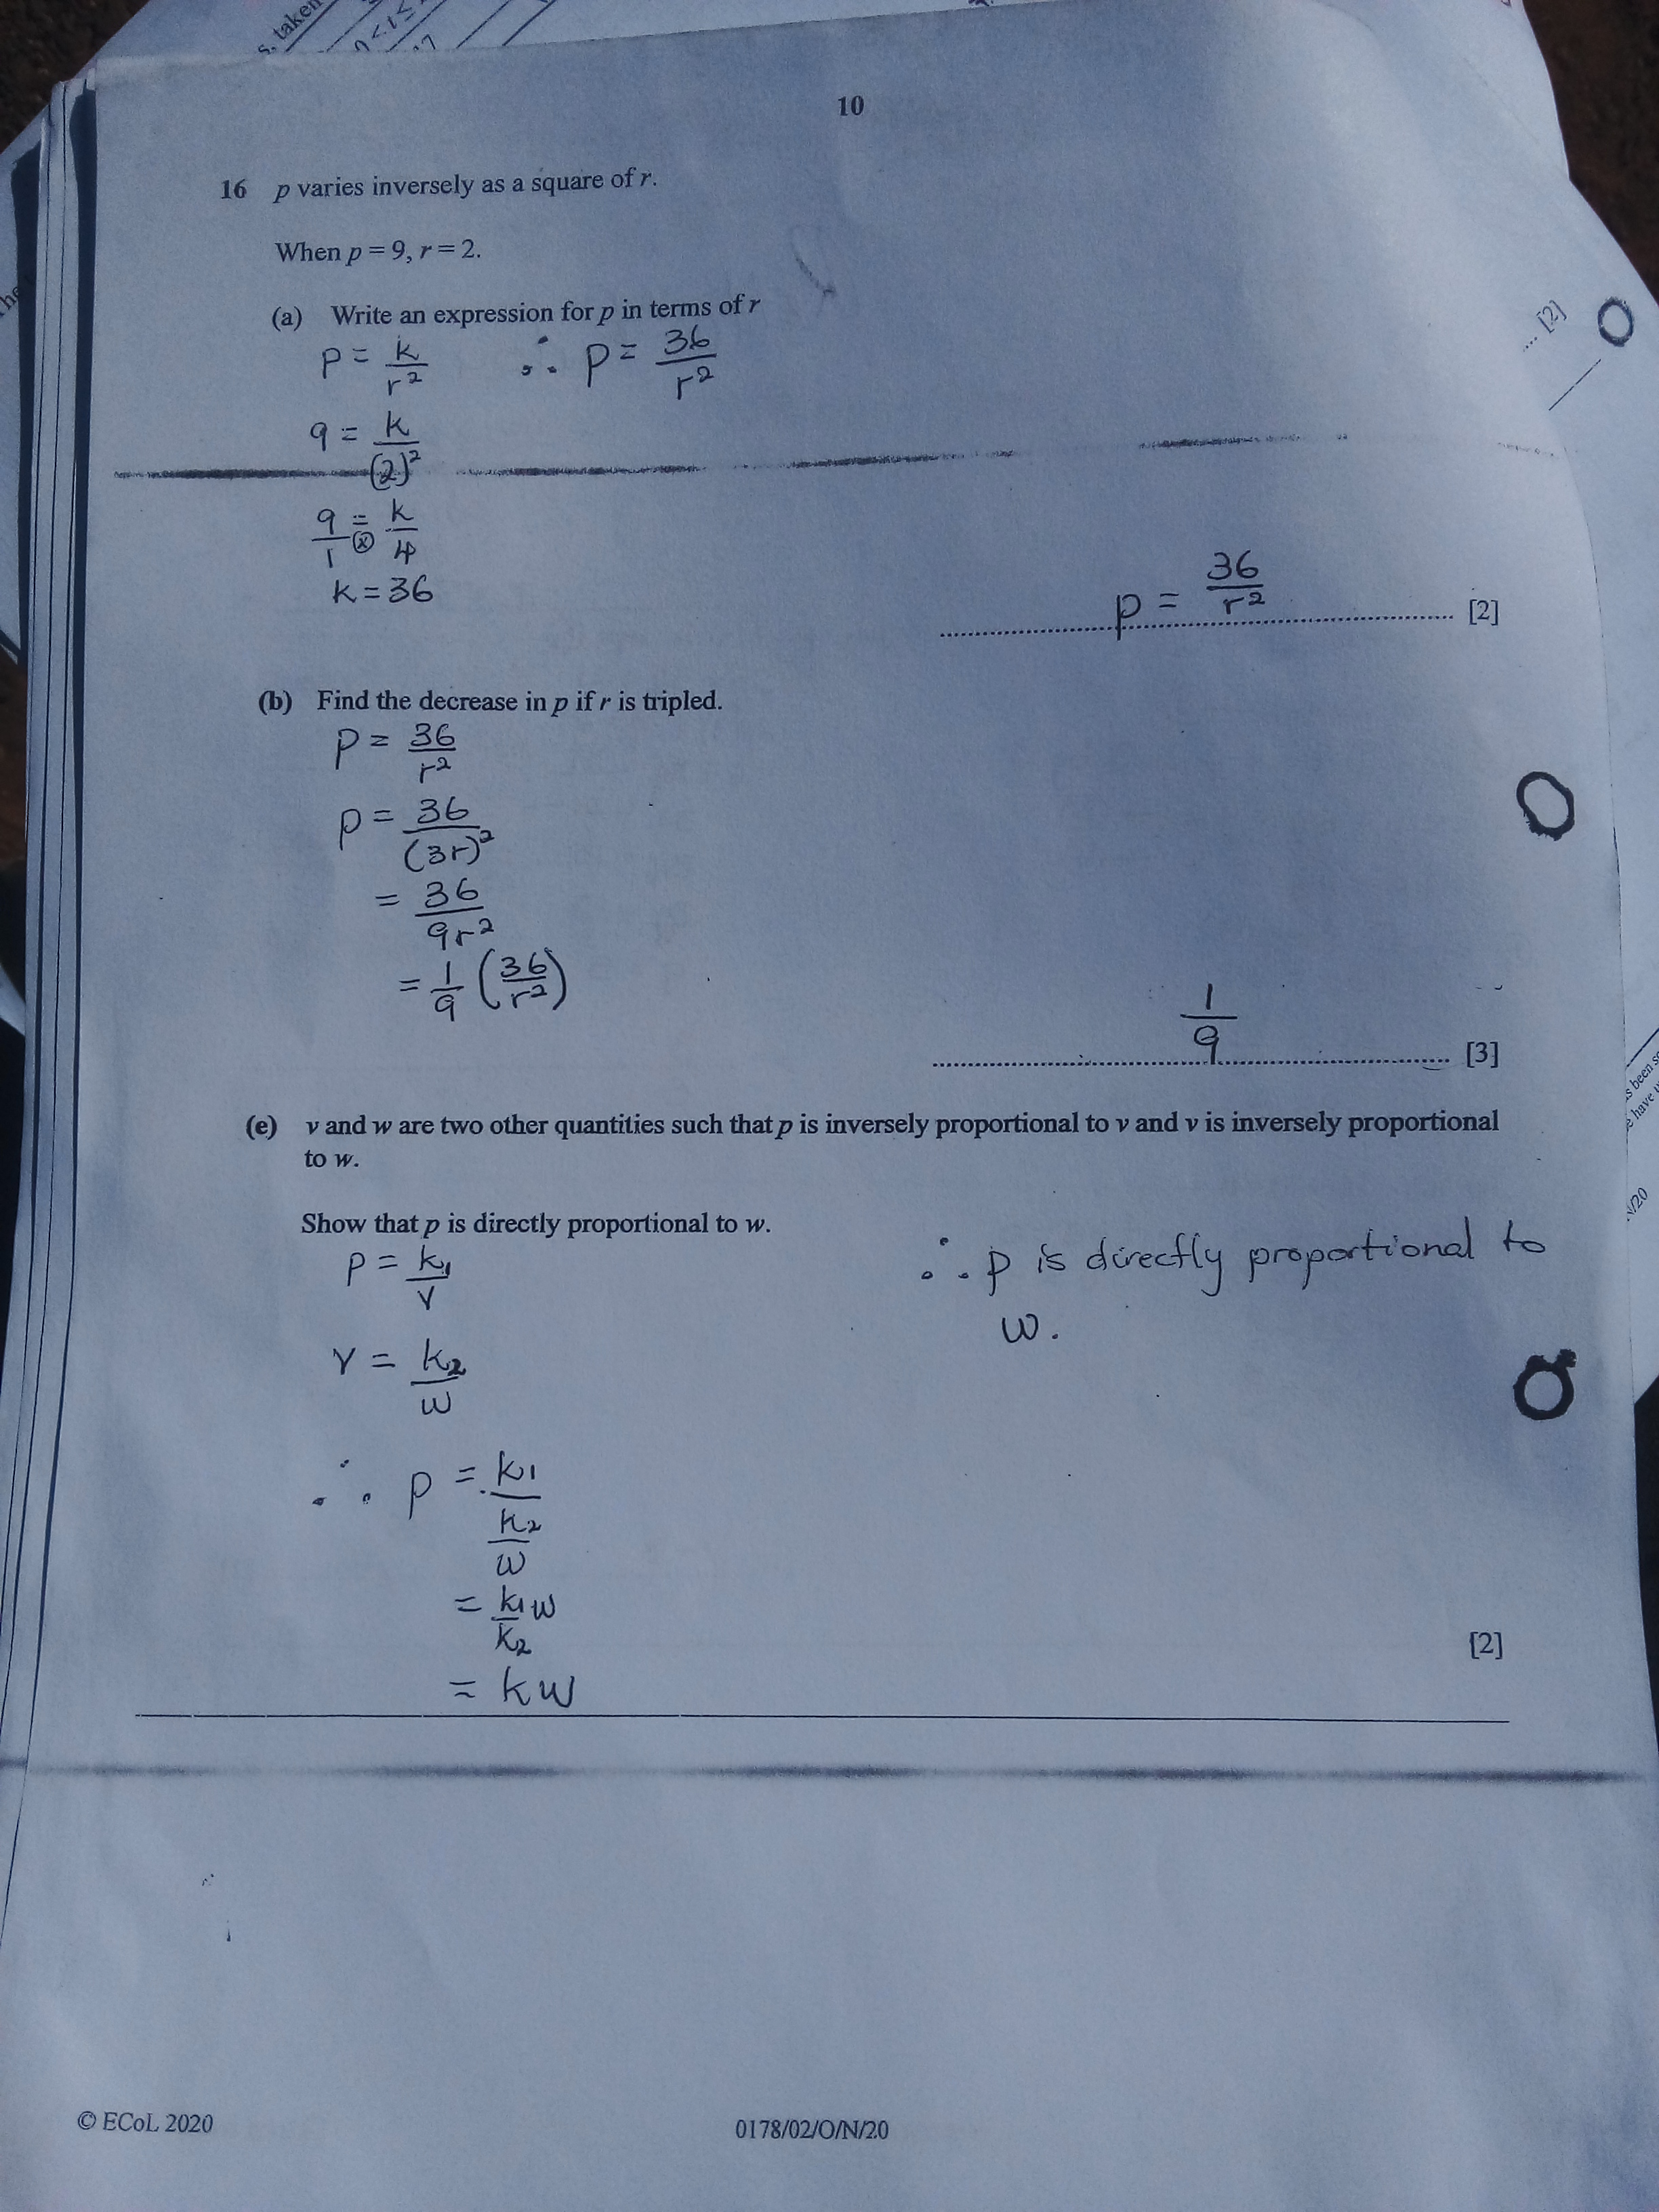 s, taken
0 < 1 ≤
17
10
16 p varies inversely as a square of r.
When p = 9, r = 2.
(a) Write an expression for p in terms of r
p = k/r²   ∴ p = 36/r²
9 = k/(2)²
9/1 = k/4
k = 36
p = 36/r² [2]
.... [2]
(b) Find the decrease in p if r is tripled.
p = 36/r²
p = 36/(3r)²
= 36/9r²
= 1/9 (36/r²)
1/9 [3]
(e) v and w are two other quantities such that p is inversely proportional to v and v is inversely proportional
to w.
Show that p is directly proportional to w.
p = k₁/v
v = k₂/w
∴ p = k₁/(k₂/w)
= k₁w/k₂
= kw
∴ p is directly proportional to
w.
[2]
s been
have
N/20
© ECoL 2020
0178/02/O/N/20